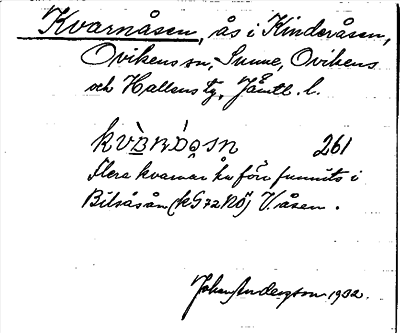 Kvarnåsen, ås i Kinderåsen,
Ovikens sn, Sunne, Ovikens
och Hallens tg, Jämtl. l.
261
Flera kvarnar ha förr funnits i
Bilsåsån V. åsen.
Johan Anderzson 1932.